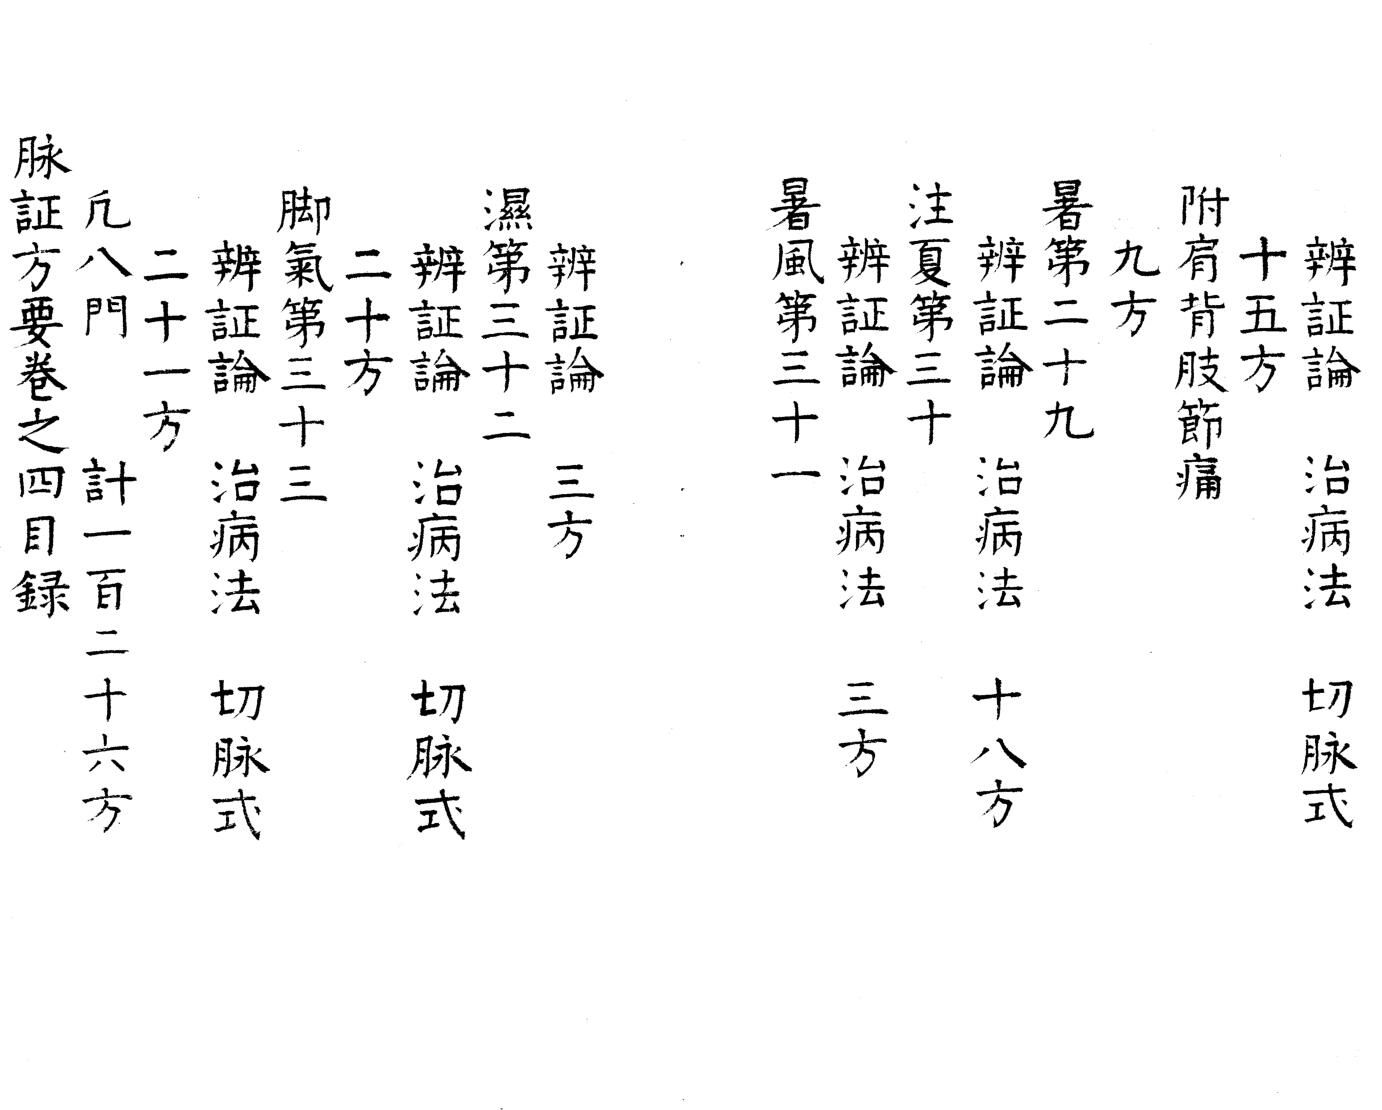 辨証論　治病法　切脉式
十五方
附肩背肢節痛
九方
暑第二十九
辨証論　治病法　十八方
注夏第三十
辨証論　治病法　三方
暑風第三十一
辨証論　三方
濕第三十二
辨証論　治病法　切脉式
二十方
脚氣第三十三
辨証論　治病法　切脉式
二十一方
凢八門　計一百二十六方
脉証方要卷之四目録